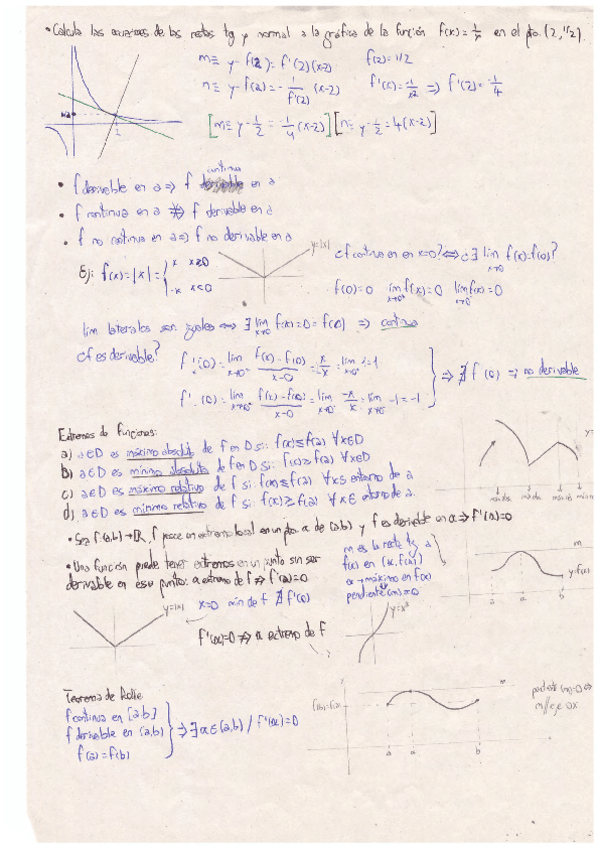 • Calcula las ecuaciones de las rectas tg y normal a la gráfica de la función f(x)=1/x en el pto. (2,1/2).
m≡ y-f(2)=f'(2)(x-2) f(2)=1/2
n≡ y-f(2)=-1/f'(2) (x-2) f'(x)=-1/x² ⇒ f'(2)=-1/4
[m≡ y-1/2=-1/4(x-2)] [n≡ y-1/2=4(x-2)]
1/2
2
• f derivable en a ⇒ f continua en a
• f continua en a ⇏ f derivable en a
• f no continua en a ⇒ f no derivable en a
y=|x|
Ej: f(x)=|x|={x x≥0
-x x<0
¿f continua en x=0? ⇔ ¿∃ lim x→0 f(x)=f(0)?
f(0)=0 lim x→0⁺ f(x)=0 lim x→0⁻ f(x)=0
lim laterales son iguales ⇔ ∃ lim x→0 f(x)=0=f(0) ⇒ continua
¿f es derivable?
f'₊(0)=lim x→0⁺ f(x)-f(0)/x-0 = x/x = lim x→0⁺ 1=1
f'₋(0)=lim x→0⁻ f(x)-f(0)/x-0 = lim x→0⁻ -x/x = lim x→0⁻ -1=-1
⇒ ∄ f'(0) ⇒ no derivable
Extremos de funciones:
a) a∈D es máximo absoluto de f en D si: f(x)≤f(a) ∀x∈D
b) a∈D es mínimo absoluto de f en D si: f(x)≥f(a) ∀x∈D
c) a∈D es máximo relativo de f si: f(x)≤f(a) ∀x∈ entorno de a
d) a∈D es mínimo relativo de f si: f(x)≥f(a) ∀x∈ entorno de a
• Sea f:(a,b)→ℝ, f posee un extremo local en un pto. α de (a,b) y f es derivable en α ⇒ f'(α)=0
m es la recta tg a
f(x) en (α,f(α))
α→máximo en f(x)
pendiente(m)=0
m
y=f(x)
a
α
b
• Una función puede tener extremos en un punto sin ser
derivable en ese punto: α extremo de f ⇏ f'(α)=0
y=|x|
x=0 min de f ∄ f'(0)
y=x³
f'(α)=0 ⇏ α extremo de f
Teorema de Rolle
f continua en [a,b]
f derivable en (a,b)
f(a)=f(b)
⇒ ∃ α∈(a,b) / f'(α)=0
y
m
a
α
b
pendiente(m)=0 ⇔
m//eje OX